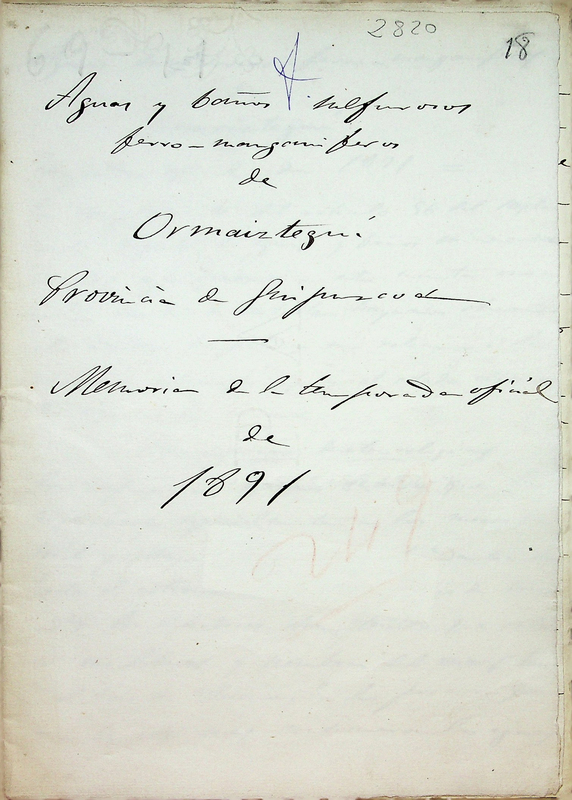 2820
18
Aguas y baños sulfurosos
ferro-manganiferos
de
Ormaiztegui
Provincia de Guipuzcoa
Memoria de la temporada oficial
de
1891